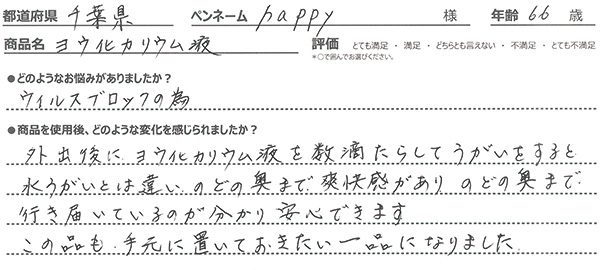 都道府県 千葉県 ペンネーム happy 様 年齢 66 歳
商品名 ヨウ化カリウム液 評価 とても満足 ・ 満足 ・ どちらとも言えない ・ 不満足 ・ とても不満足
*○で囲んでお選びください。
●どのようなお悩みがありましたか？
ウィルスブロックの為
●商品を使用後、どのような変化を感じられましたか？
外出後に ヨウ化カリウム液を数滴たらしてうがいをすると
水うがいとは違い のどの奥まで爽快感があり のどの奥まで
行き届いているのが分かり安心できます
この品も 手元に置いておきたい一品になりました